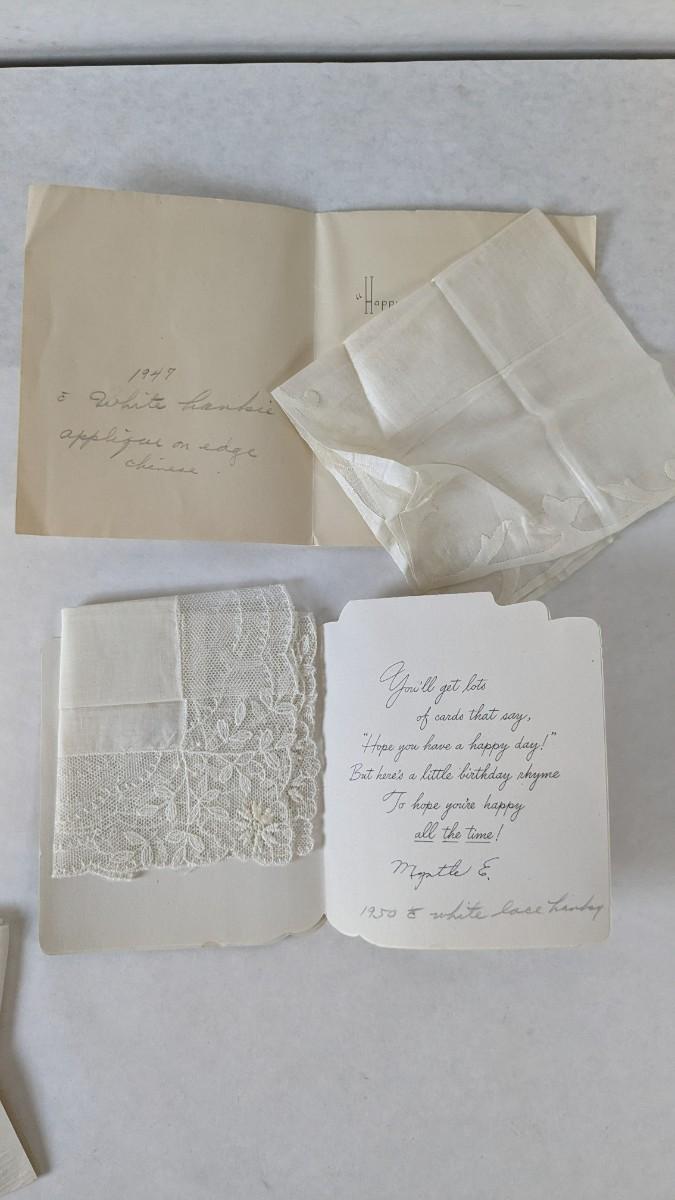 "Happy
1947
c̄ White hankie
applique on edge
chinese.
You'll get lots
of cards that say,
"Hope you have a happy day!"
But here's a little birthday rhyme
To hope you're happy
all the time!
Myrtle E.
1950 c̄ white lace hanky